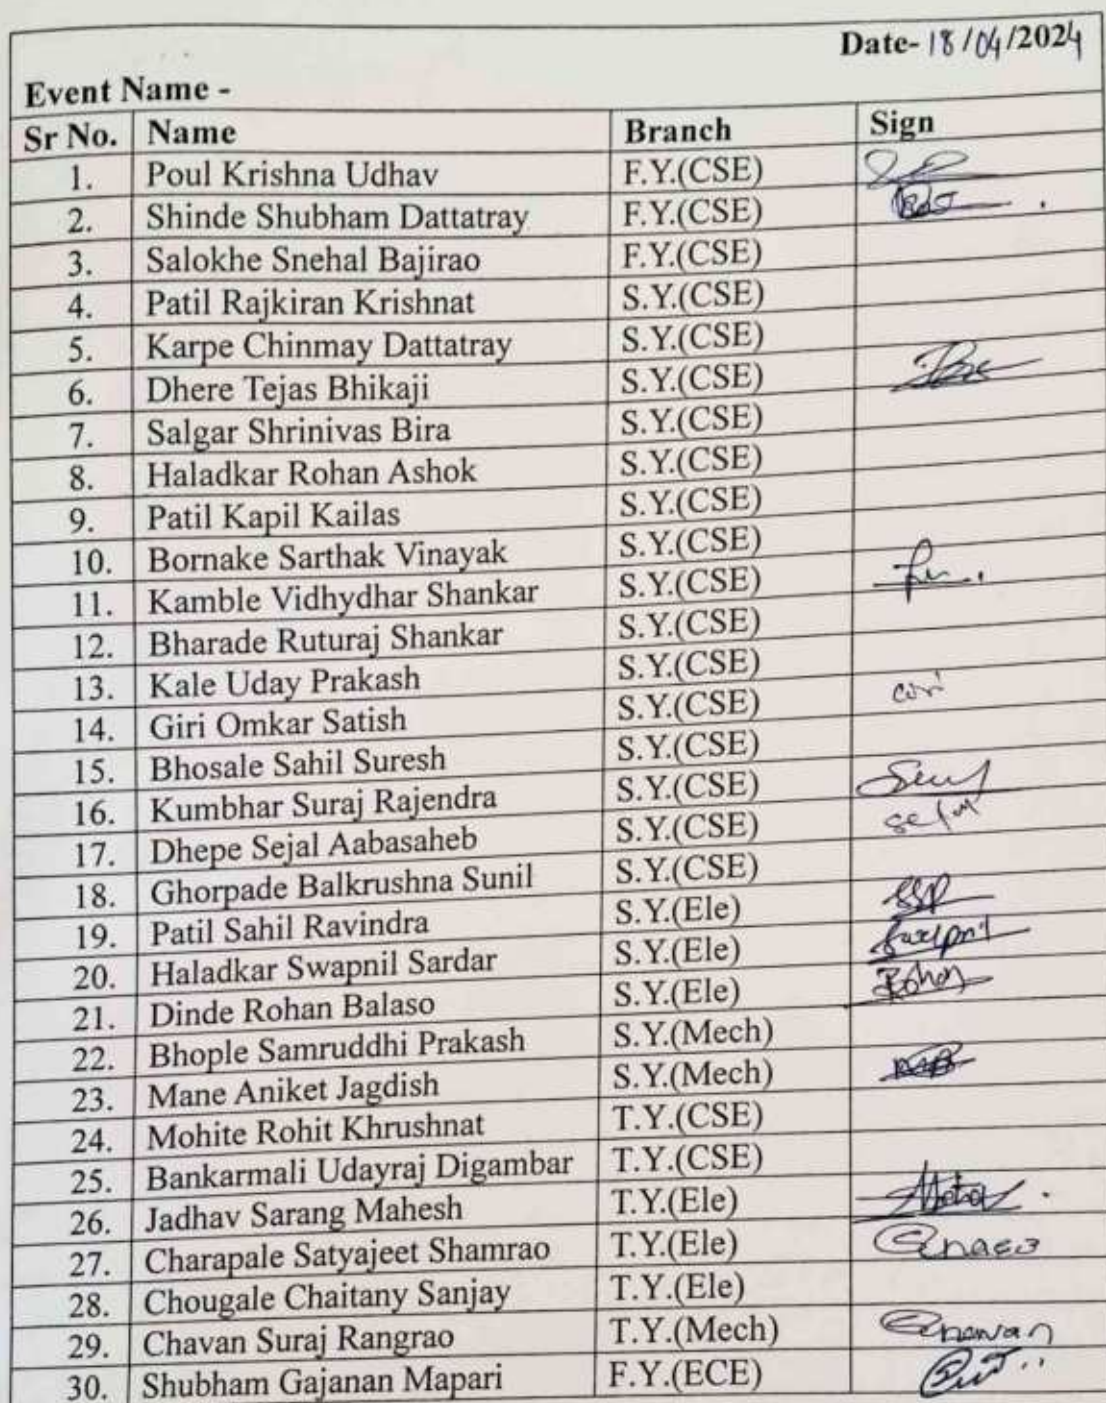 Date- 18/04/2024
Event Name -
Sr No. Name Branch Sign
1. Poul Krishna Udhav F.Y.(CSE)
2. Shinde Shubham Dattatray F.Y.(CSE)
3. Salokhe Snehal Bajirao F.Y.(CSE)
4. Patil Rajkiran Krishnat S.Y.(CSE)
5. Karpe Chinmay Dattatray S.Y.(CSE)
6. Dhere Tejas Bhikaji S.Y.(CSE)
7. Salgar Shrinivas Bira S.Y.(CSE)
8. Haladkar Rohan Ashok S.Y.(CSE)
9. Patil Kapil Kailas S.Y.(CSE)
10. Bornake Sarthak Vinayak S.Y.(CSE)
11. Kamble Vidhydhar Shankar S.Y.(CSE)
12. Bharade Ruturaj Shankar S.Y.(CSE)
13. Kale Uday Prakash S.Y.(CSE)
14. Giri Omkar Satish S.Y.(CSE)
15. Bhosale Sahil Suresh S.Y.(CSE)
16. Kumbhar Suraj Rajendra S.Y.(CSE)
17. Dhepe Sejal Aabasaheb S.Y.(CSE)
18. Ghorpade Balkrushna Sunil S.Y.(CSE)
19. Patil Sahil Ravindra S.Y.(Ele)
20. Haladkar Swapnil Sardar S.Y.(Ele)
21. Dinde Rohan Balaso S.Y.(Ele) Rohan
22. Bhople Samruddhi Prakash S.Y.(Mech)
23. Mane Aniket Jagdish S.Y.(Mech)
24. Mohite Rohit Khrushnat T.Y.(CSE)
25. Bankarmali Udayraj Digambar T.Y.(CSE)
26. Jadhav Sarang Mahesh T.Y.(Ele)
27. Charapale Satyajeet Shamrao T.Y.(Ele)
28. Chougale Chaitany Sanjay T.Y.(Ele)
29. Chavan Suraj Rangrao T.Y.(Mech)
30. Shubham Gajanan Mapari F.Y.(ECE)